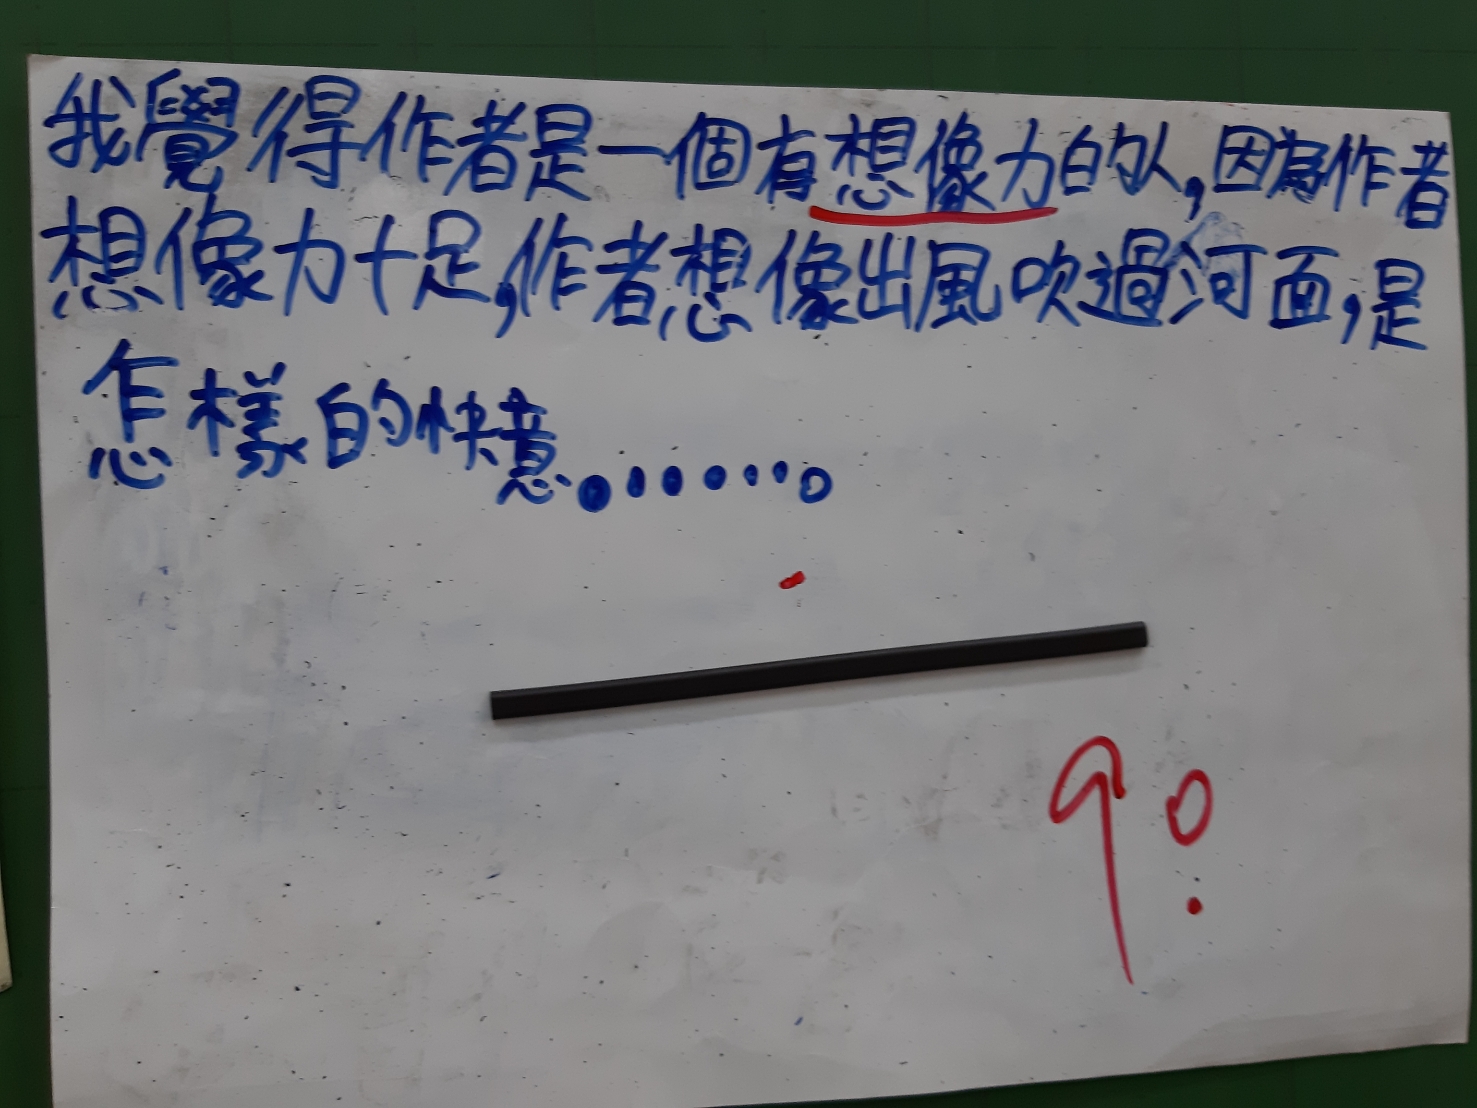 我覺得作者是一個有想像力的人,因為作者
想像力十足,作者想像出風吹過河面,是
怎樣的快意.......。
90